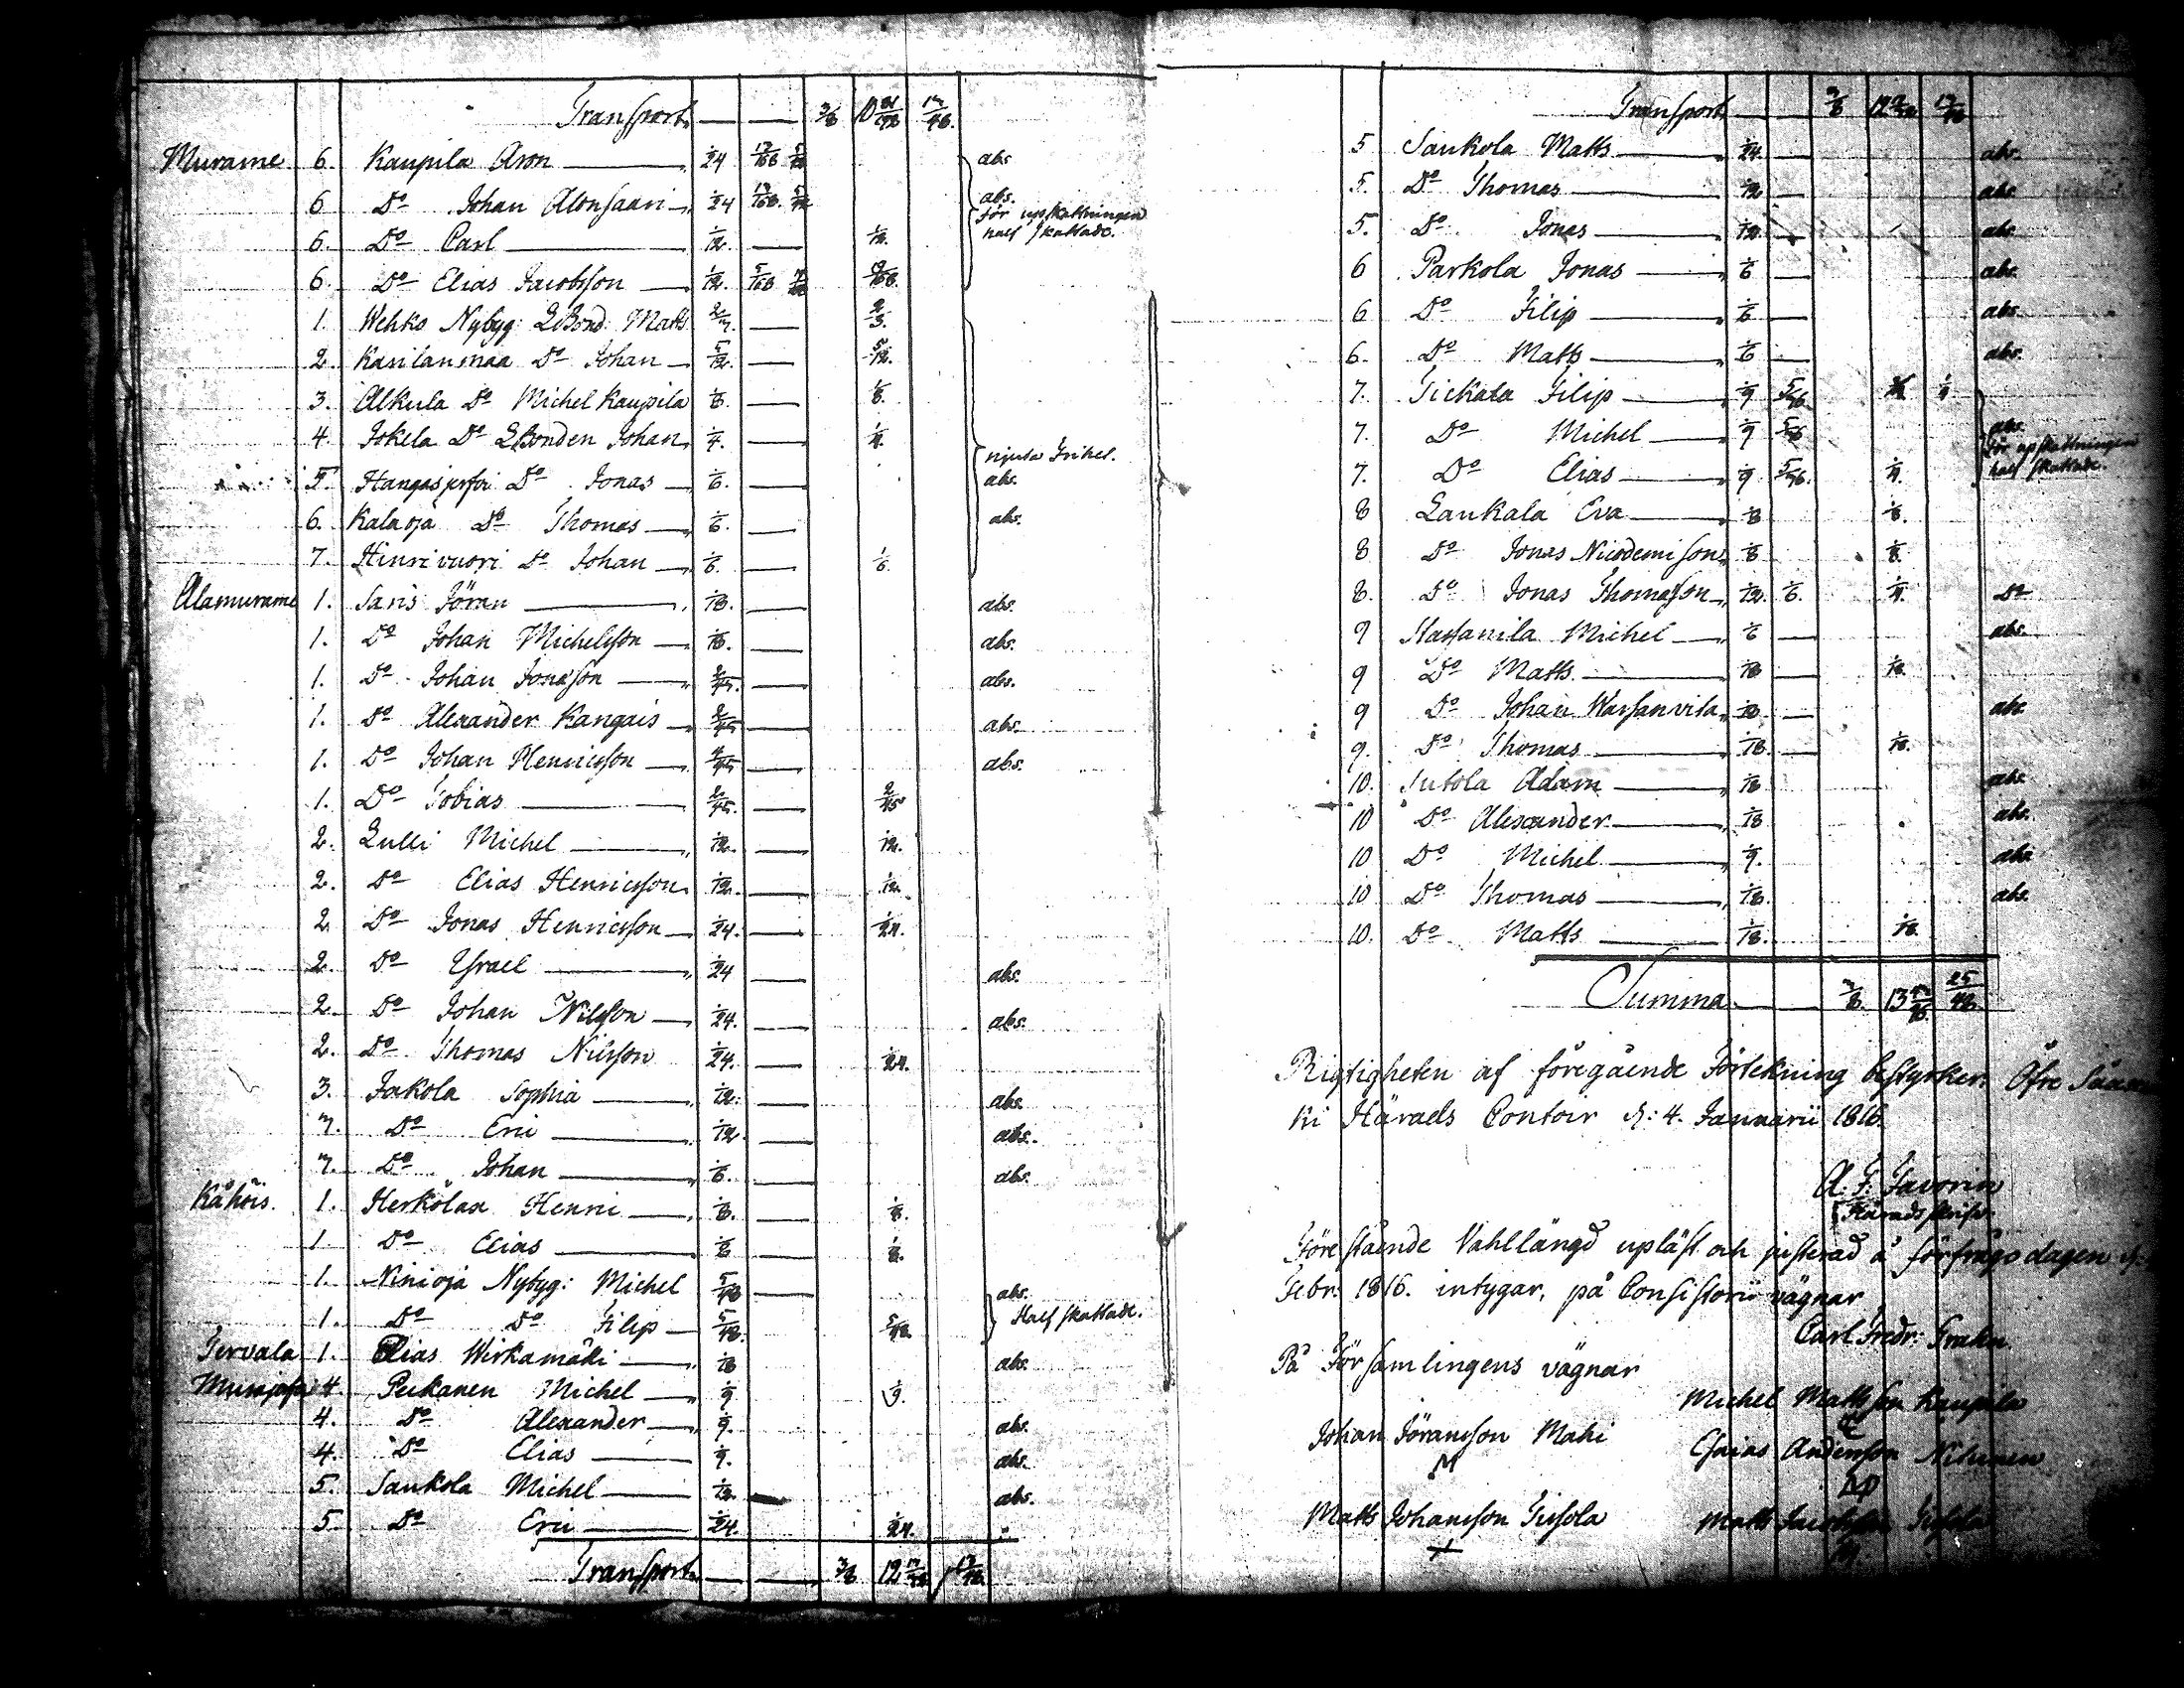 Transport 3/8 10 31/192 17/48
Murame 6. Kaupila Aron 1/24 abs
6 Do Johan Alonsaari 1/24 abs. för upskattningen
6. Do Carl 1/12. 1/12. half skattade.
6. Do Elias Jacobsson 1/12.
1. Wehko Nybyg: LBond: Matts 2/3. 2/3.
2. Karilanmaa Do Johan 5/12. 5/12.
3. Alkula Do Michel Kaupila 1/8. 1/8.
4. Jokela Do LBonden Johan 1/4. 1/4. njuta Frihet.
5. Hangasjerfvi Do Jonas 1/6. abs.
6. Kalaoja Do Thomas 1/6. abs.
7. Hinrivuori Do Johan 1/6. 1/6.
Alamurame 1. Saris Jöran 1/18. abs.
1. Do Johan Michelsson 1/18. abs.
1. Do Johan Jonasson 2/45. abs.
1. Do Alexander Kangais 2/45. abs.
1. Do Johan Henricsson 4/45. abs.
1. Do Tobias 2/45. 2/45
2. Lulli Michel 1/12. 1/12.
2. Do Elias Henricsson 1/12. 1/12.
2 Do Jonas Henricsson 1/24. 1/24.
2. Do Ysrael 1/24 abs.
2. Do Johan Nilsson 1/24. abs.
2. Do Thomas Nilsson 1/24. 1/24.
3. Jakola Sophia 1/12. abs.
3. Do Eric 1/12. abs.
3. Do Johan 1/6. abs.
Kähöis. 1. Herkölax Henric 1/8. 1/8.
1 Do Elias 1/8 1/8.
1. Ninioja Nybyg: Michel 5/48 abs.
1. Do Do Filip 5/48. 5/48. Half skattade.
Jervala 1. Elias Wirkamäki 1/18 abs.
4. Peckanen Michel 1/9 1/9.
4. Do Alexander 1/9. abs.
4. Do Elias 1/9. abs.
5. Saukola Michel 1/12. abs.
5. Do Eric 1/24. 1/24.
Transport 3/8 12
Transport 3/8 12
5 Saukola Matts 1/24. abs.
5. Do Thomas 1/12 abs
5. Do Jonas 1/12. abs
6 Parkola Jonas 1/6 abs.
6 Do Filip 1/6 abs.
6. Do Matts 1/6 abs.
7. Tickala Filip 1/9 5/96
7. Do Michel 1/9 5/96 abs. för upskattningen
7. Do Elias 1/9 5/96. 1/4. half skattade.
8 Laukala Eva 1/8 1/8.
8 Do Jonas Nicodemisson 1/8 1/8.
8. Do Jonas Thomasson 1/12. 1/6. 1/4. Do
9 Hassanila Michel 1/6 abs.
9 Do Matts 1/18 1/18.
9 Do Johan 1/18 abs
9. Do Thomas 1/18. 1/18.
10. Jutola Adam 1/18 abs
10 Do Alexander 1/18 abs.
10 Do Michel 1/9. abs
10 Do Thomas 1/18. abs.
10. Do Matts 1/18. 1/18.
Summa 3/8. 13 25/48.
Rigtigheten af föregående Förtekning bestyrker. Öfre
ki Härads Contoir d: 4. Januarii 1816.
A. F. Favorin
Häradsskrifv.
Förestående Vahllängd upläst och justerad å förfrågsdagen d.
Febr. 1816. intygar, på Consistorii vägnar
Carl Fredr:
På Församlingens vägnar
Michel Mattsson Kaupila
Johan Jöransson Mahi
Esaias Andersson Nihinen
Matts Johansson Tissola
Matts